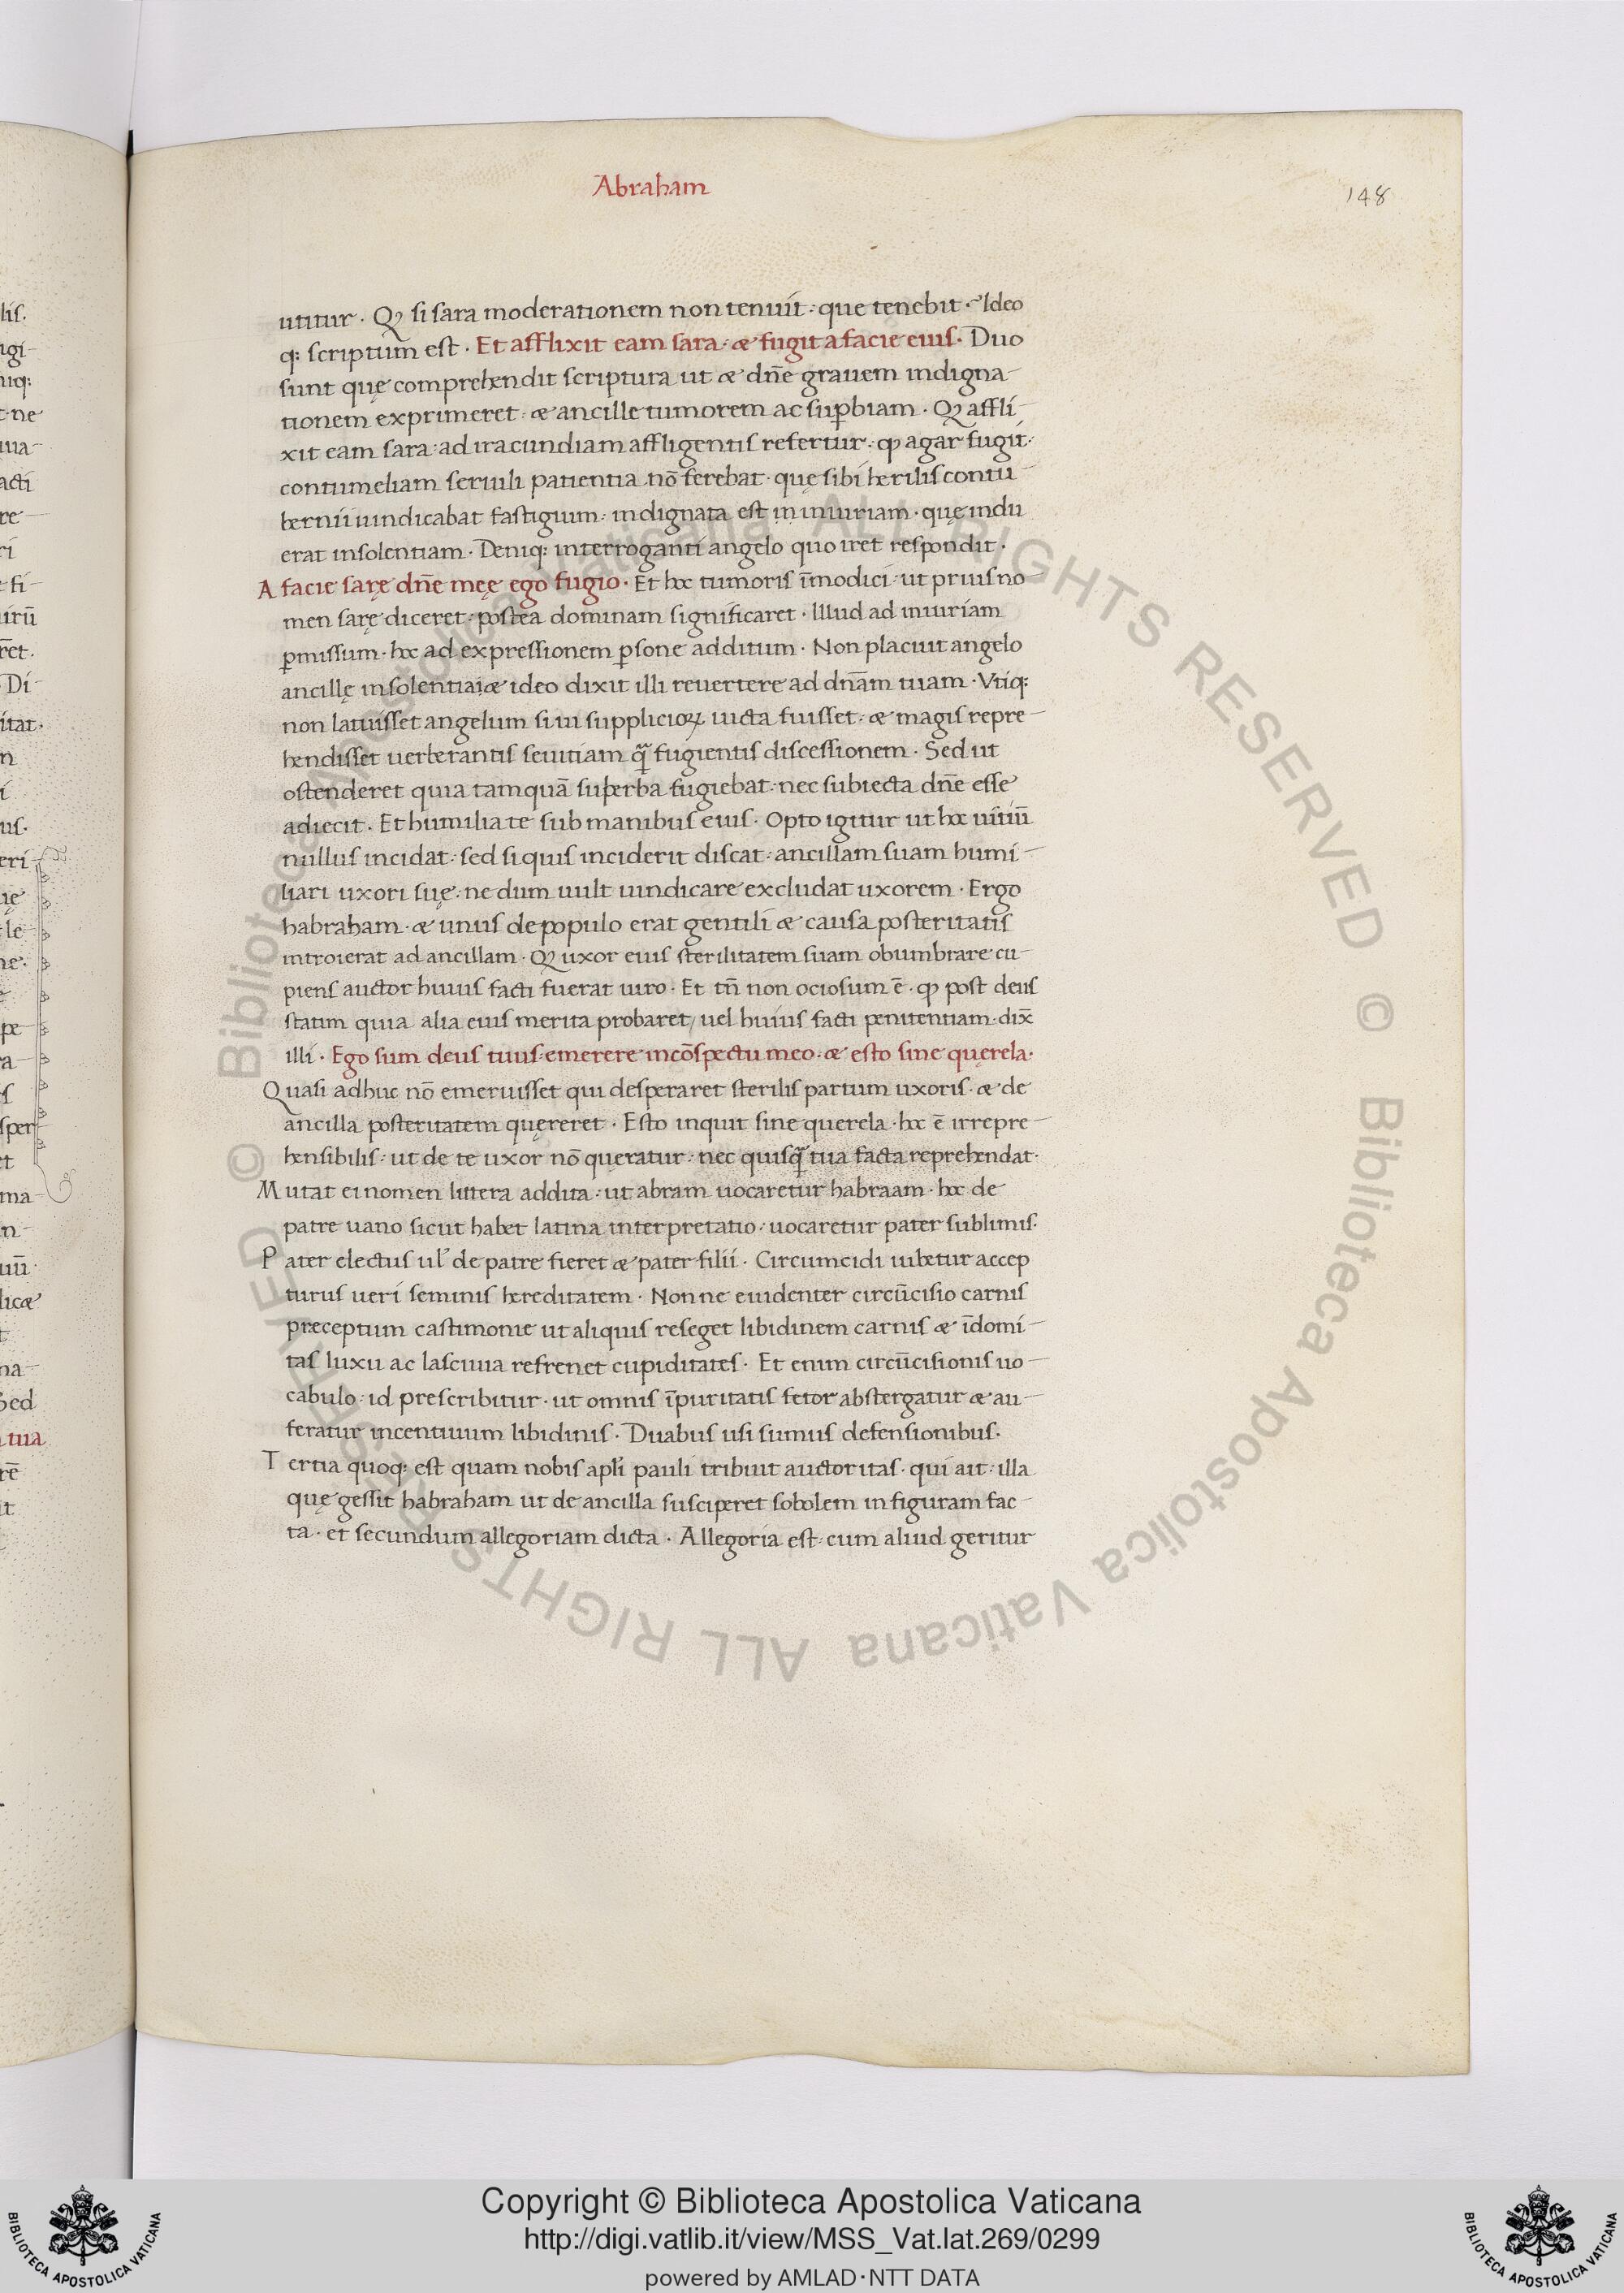 Abraham
148
utitur. Qꝫ si sara moderationem non tenuit: que tenebit. Ideo
q: scriptum est. Et afflixit eam sara: & fugit a facie eius. Duo
sunt quę comprehendit scriptura ut & dn̄e grauem indigna-
tionem exprimeret: & ancille tumorem ac suꝑbiam. Qꝫ affli-
xit eam sara: ad iracundiam affligentis refertur: qꝫ agar fugit:
contumeliam seruili patientia nō ferebat. quę sibi herilis contu-
bernii uindicabat fastigium: indignata est in iniuriam. quę indu
erat insolentiam. Deniq: interroganti angelo quo iret respondit.
A facie sarę dn̄e męę ego fugio. Et hoc tumoris īmodici: ut prius no-
men sarę diceret: postea dominam significaret. Illud ad iniuriam
ꝑmissum. hoc ad expressionem ꝑsone additum. Non placuit angelo
ancillę insolentia: & ideo dixit illi reuertere ad dn̄am tuam. Vtiq:
non latuisset angelum si ui supplicioꝝ iacta fuisset: & magis repre-
hendisset uerberantis seuitiam q̃ fugientis discessionem. Sed ut
ostenderet quia tamquā superba fugiebat: nec subiecta dn̄e esse
adiecit. Et humilia te sub manibus eius. Opto igitur ut hoc uitiū
nullus incidat: sed si quis inciderit discat: ancillam suam humi-
liari uxori suę: ne dum uult uindicare excludat uxorem. Ergo
habraham. & unus de populo erat gentili & causa posteritatis
introierat ad ancillam. Qꝫ uxor eius sterilitatem suam obumbrare cu-
piens auctor huius facti fuerat uiro. Et tn̄ non ociosum ē. qꝫ post deus
statim quia alia eius merita probaret, uel huius facti penitentiam. dix̄
illi. Ego sum deus tuus: emerere in cōspectu meo: & esto sine quęrela.
Quasi adhuc nō emeruisset qui desperaret sterilis partum uxoris. & de
ancilla posteritatem quęreret. Esto inquit sine querela. hoc ē irrepre-
hensibilis: ut de te uxor nō quęratur: nec quisq̃ tua facta reprehendat.
Mutat ei nomen littera addita: ut abram uocaretur habraam. hoc de
patre uano sicut habet latina interpretatio: uocaretur pater sublimis.
Pater electus ul' de patre fieret & pater filii. Circumcidi iubetur accep
turus ueri seminis hereditatem. Nonne euidenter circūcisio carnis
preceptum castimonie ut aliquis reseget libidinem carnis & īdomi-
tas luxu ac lasciuia refrenet cupiditates. Et enim circūcisionis uo-
cabulo: id prescribitur. ut omnis īpuritatis fetor abstergatur & au-
feratur incentiuum libidinis. Duabus usi sumus defensionibus.
Tertia quoq: est quam nobis apl'i pauli tribuit auctoritas. qui ait: illa
quę gessit habraham ut de ancilla susciperet sobolem in figuram fac-
ta. et secundum allegoriam dicta. Allegoria est: cum aliud geritur
© Biblioteca Apostolica Vaticana ALL RIGHTS RESERVED © Biblioteca Apostolica Vaticana ALL RIGHTS RESERVED
Copyright © Biblioteca Apostolica Vaticana
http://digi.vatlib.it/view/MSS_Vat.lat.269/0299
powered by AMLAD·NTT DATA
BIBLIOTECA APOSTOLICA VATICANA
BIBLIOTECA APOSTOLICA VATICANA